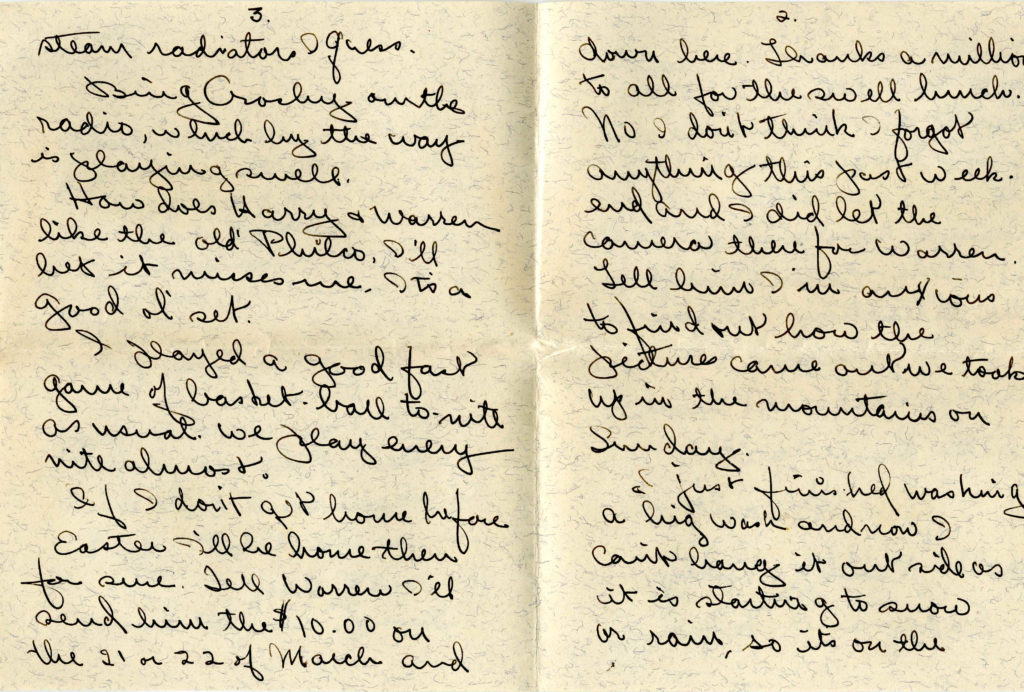 2.
down here. Thanks a million
to all for the swell lunch.
No I don't think I forgot
anything this past week-
end and I did let the
camera there for Warren.
Tell him I'm anxious
to find out how the
pictures came out we took
up in the mountains on
Sunday.
I just finished washing
a big wash and now I
can't hang it out side as
it is starting to snow
or rain, so its on the
3.
steam radiators I guess.
Bing Crosby on the
radio, which by the way
is playing swell.
How does Harry & Warren
like the old Philco, I'll
bet it misses me. Its a
good ol' set.
I played a good fast
game of basket-ball to-nite
as usual. We play every
nite almost.
If I don't get home before
Easter I'll be home then
for sure. Tell Warren I'll
send him the $10.00 on
the 21 or 22 of March and